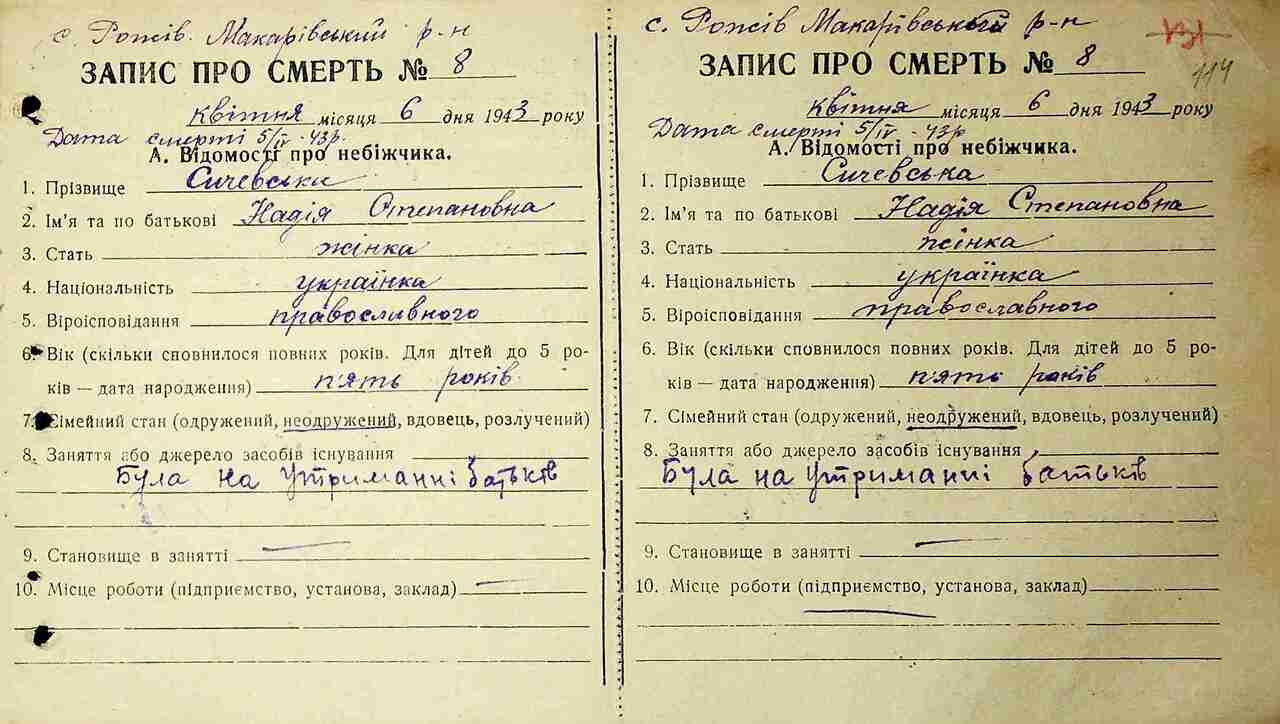 с. Рожів. Макарівський р-н
ЗАПИС ПРО СМЕРТЬ № 8
квітня місяця 6 дня 1943 року
Дата смерті 5/IV -43р.
А. Відомості про небіжчика.
1. Прізвище Сичевська
2. Ім'я та по батькові Надія Степановна
3. Стать жінка
4. Національність українка
5. Віроісповідання православного
6. Вік (скільки сповнилося повних років. Для дітей до 5 ро-
ків — дата народження) п'ять років.
7. Сімейний стан (одружений, неодружений, вдовець, розлучений)
8. Заняття або джерело засобів існування
Була на утриманні батьків
9. Становище в занятті —
10. Місце роботи (підприємство, установа, заклад) —
с. Рожів Макарівський р-н
131
114
ЗАПИС ПРО СМЕРТЬ № 8
квітня місяця 6 дня 1943 року
Дата смерті 5/IV -43р
А. Відомості про небіжчика.
1. Прізвище Сичевська
2. Ім'я та по батькові Надія Степановна
3. Стать жінка
4. Національність українка
5. Віроісповідання православного
6. Вік (скільки сповнилося повних років. Для дітей до 5 ро-
ків — дата народження) п'ять років
7. Сімейний стан (одружений, неодружений, вдовець, розлучений)
8. Заняття або джерело засобів існування
Була на утриманні батьків
9. Становище в занятті —
10. Місце роботи (підприємство, установа, заклад)
—